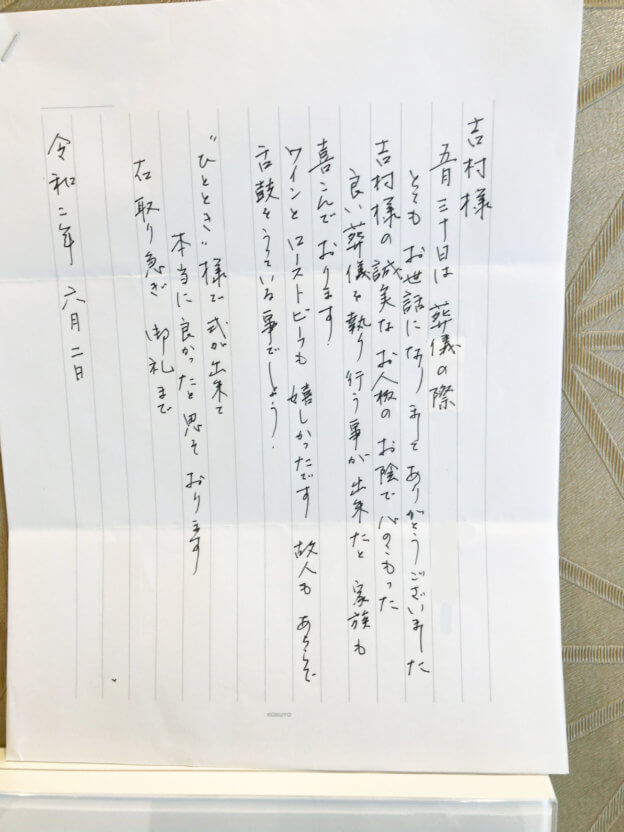 吉村様
五月三十日は 葬儀の際
とても お世話になりましてありがとうございました
吉村様の誠実な お人柄の お陰で 心のこもった
良い葬儀を執り行う事が出来たと 家族も
喜こんでおります。
ワインと ローストビーフも 嬉しかったです 故人も あちらで
舌鼓をうっている事でしょう。
"ひととき"様で 式が出来て
本当に良かったと思って おります
右 取り急ぎ 御礼まで
令和二年 六月二日
KOKUYO